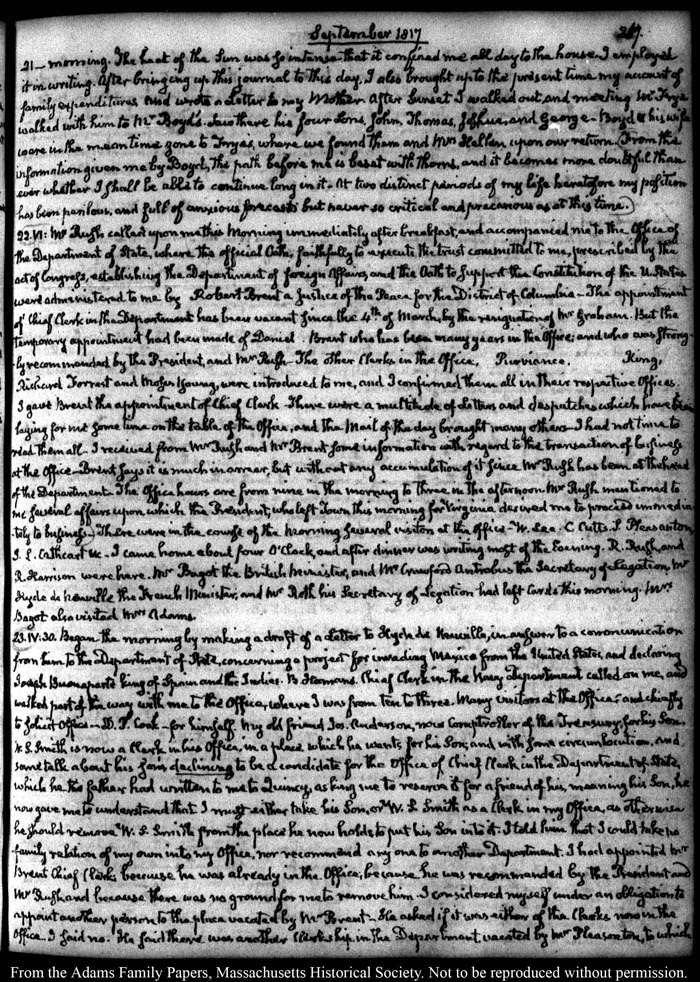 September 1817
267.
21— morning. The heat of the Sun was so intense that it confined me all day to the house. I employed
it in writing. After bringing up this journal to this day, I also brought up to the present time my account of
family expenditures and wrote a Letter to my Mother. After Sunset I walked out, and meeting Mr Frye
walked with him to Mr Boyd's. Saw there his four Sons, John, Thomas, Joshua, and George— Boyd & his wife
were in the mean time gone to Fryes, where we found them and Mrs Hellen upon our return. From the
information given me by Boyd, the path before me is beset with thorns, and it becomes more doubtful than
ever whether I shall be able to continue long in it— At two distinct periods of my life heretofore my position
has been perilous, and full of anxious forecast; but never so critical and precarious as at this time.
22. VI: Mr Rush called upon me this Morning immediately after breakfast, and accompanied me to the Office of
the Department of State, where the official Oath, faithfully to execute the trust committed to me, prescribed by the
act of Congress, establishing the Department of foreign Affairs, and the Oath to Support the Constitution of the U. States
were administered to me by Robert Brent a Justice of the Peace for the District of Columbia— The appointment
of Chief Clerk in the Department has been vacant since the 4th of March, by the resignation of Mr Graham. But the
temporary appointment had been made of Daniel Brent who has been many years in the Office, and who was strong-
ly recommended by the President, and Mr Rush— The other Clerks in the Office, Purviance, King,
Richard Forrest and Moses Young, were introduced to me, and I confirmed them all in their respective Offices.
I gave Brent the appointment of Chief Clerk— There were a multitude of Letters and despatches which have been
laying for me some time on the table of the Office, and the Mail of the day brought many others— I had not time to
read them all. I received from Mr Rush and Mr Brent some information with regard to the transaction of business
at the Office— Brent says it is much in arrear, but without any accumulation of it since Mr Rush has been at the head
of the Department— The Office hours are from nine in the morning to Three in the afternoon. Mr Rush mentioned to
me several affairs upon which the President, who left Town this morning for Virginia, desired me to proceed immedia-
tely to business— There were in the course of the morning several visitors at the Office— W. Lee. C. Cutts. S. Pleasanton,
J. L. Cathcart &c— I came home about four O'Clock, and after dinner was writing most of the Evening. R. Rush, and
R. Harrison were here. Mr Bagot the British Minister, and Mr Crawford Antrobus the Secretary of Legation, Mr
Hyde de Neuville the French Minister, and Mr Roth his Secretary of Legation had left Cards this morning. Mrs
Bagot also visited Mrs Adams.
23. IV:30. Began the morning by making a draft of a Letter to Hyde de Neuville, in answer to a communication
from him to the Department of State, concerning a project for invading Mexico from the United States, and declaring
Joseph Buonaparte king of Spain and the Indies. B. Homans, Chief Clerk in the Navy Department called on me, and
walked part of the way with me to the Office, where I was from ten to three. Many visitors at the Office; and chiefly
to solicit Office— D. P. Cook— for himself. My old friend Jos. Anderson, now Comptroller of the Treasury, for his Son.
W. S. Smith is now a Clerk in his Office, in a place which he wants for his Son; and with some circumlocution, and
some talk about his Son's declining to be a candidate for the Office of Chief Clerk in the Department of State,
which he the father had written to me to Quincy, asking me to reserve it for a friend of his, meaning his Son, he
now gave me to understand that I must either take his Son, or W. S. Smith as a Clerk in my Office, as otherwise
he should remove W. S. Smith from the place he now holds to put his Son into it. I told him that I could take no
family relation of my own into my Office, nor recommend any one to another Department. I had appointed Mr
Brent Chief Clerk, because he was already in the Office; because he was recommended by the President and
Mr Rush and because there was no ground for me to remove him. I considered myself under an obligation to
appoint another person to the place vacated by Mr Brent— He asked if it was either of the Clerks now in the
Office. I said no. He said there was another Clerkship in the Department vacated by Mr Pleasonton, to which
From the Adams Family Papers, Massachusetts Historical Society. Not to be reproduced without permission.